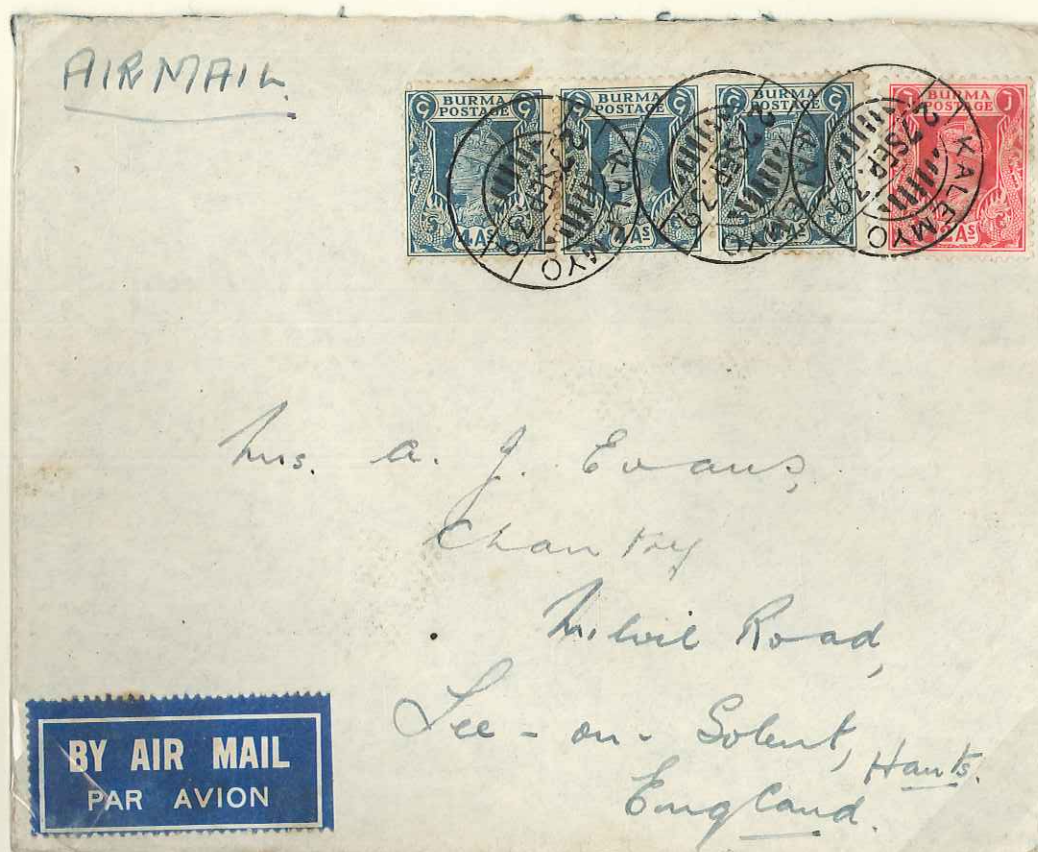 AIRMAIL
BURMA POSTAGE
4 AS
BURMA POSTAGE
AS
BURMA POSTAGE
AS
BURMA POSTAGE
2 AS
KALEMYO
27 SEP. 39
KALEMYO
27 SEP. 39
KALEMYO
27 SEP. 39
Mrs. A. J. Evans,
Chantry
Milvil Road,
Lee-on-Solent,
Hants.
England.
BY AIR MAIL
PAR AVION